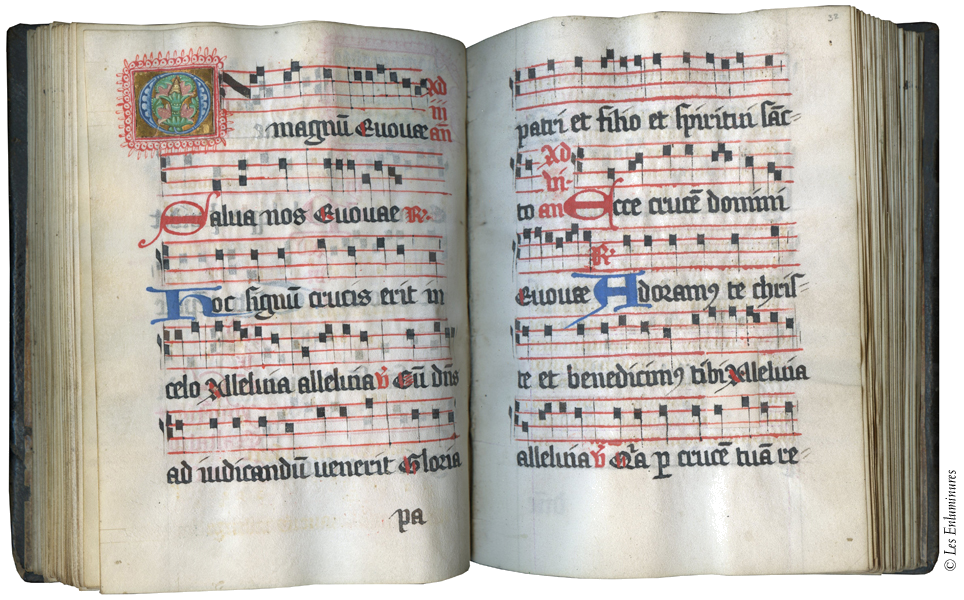 O magnū Euouae Ad
iii
an̄
Salua nos Euouae R.
Hoc signū crucis erit in
celo Alleluia alleluia v̄ Cū dn̄s
ad iudicandū uenerit Gloria
pa
32
patri et filio et spiritui sāc=
Ad
vi.
to an Ecce crucē domini
R.
Euouae Adoramꝰ te chris=
te et benedicimꝰ tibi Alleluia
alleluia v̄ Qr̄a ꝑ crucē tuā re=
© Les Enluminures